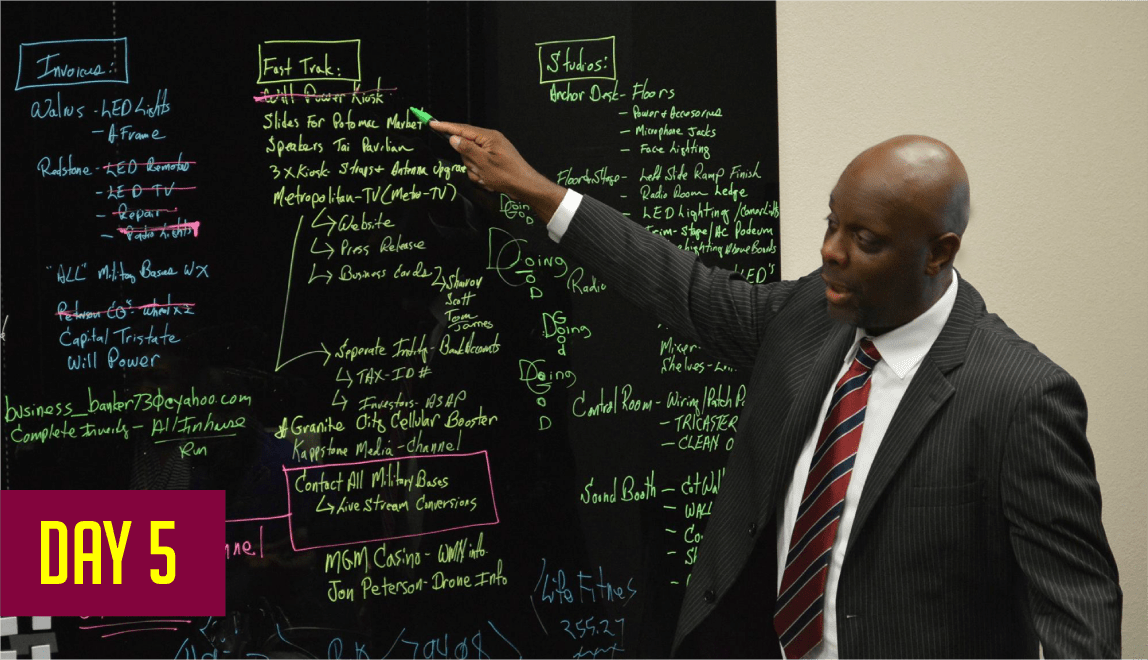 Invoices:
Walrus - LED Lights
- A Frame
Redstone - LED Remotes
- LED TV
- Repair
- Radio Lights
"ALL" Military Bases WX
Peterson CO's wheel x 2
Capital Tristate
Will Power
business_banker73@yahoo.com
Complete - All Inhouse
Run
Fast Trak:
Will Power Kiosk
Slides For Potomac Market
Speakers Tai Pavilian
3 x Kiosk Straps + Antenna Upgrade
Metropolitan-TV (Metro-TV)
Website
Press Release
Business Cards
Sharov
Scott
Tom
James
Seperate Entity - Bank Accounts
TAX-ID #
Investors - ASAP
Granite City Cellular Booster
Kappstone Media - Channel
Contact All Military Bases
Live Stream Conversions
MGM Casino - WMH info
Jon Peterson - Drone Info
Doing
God
Doing
O
D
Radio
Doing
God
Doing
O
D
Studios:
Anchor Desk - Floors
- Power & Accessories
- Microphone Jacks
- Face Lighting
Floor on Stage - Left Side Ramp Finish
- Radio Room Ledge
- LED Lighting /
Trim - Stage / AC Podeum
lighting Above Boards
LED's
Mixer
Shelves -
Control Room - Wiring / Patch
- TRICASTER
- CLEAN O
Sound Booth - Cut Wal
- WALL
- Co
- S
Life Fitness
255.27
nnel
DAY 5